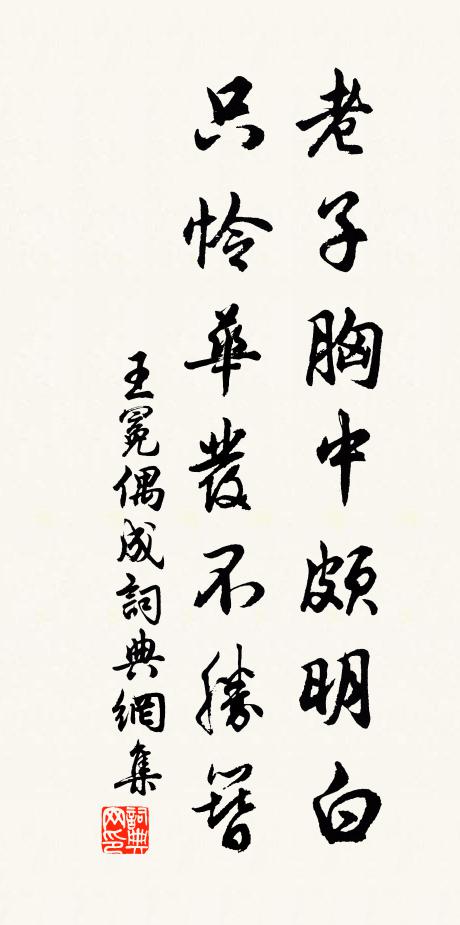 老子胸中頗明白
只怜華發不勝簪
王冕偶成詞典網集
詞典
网印